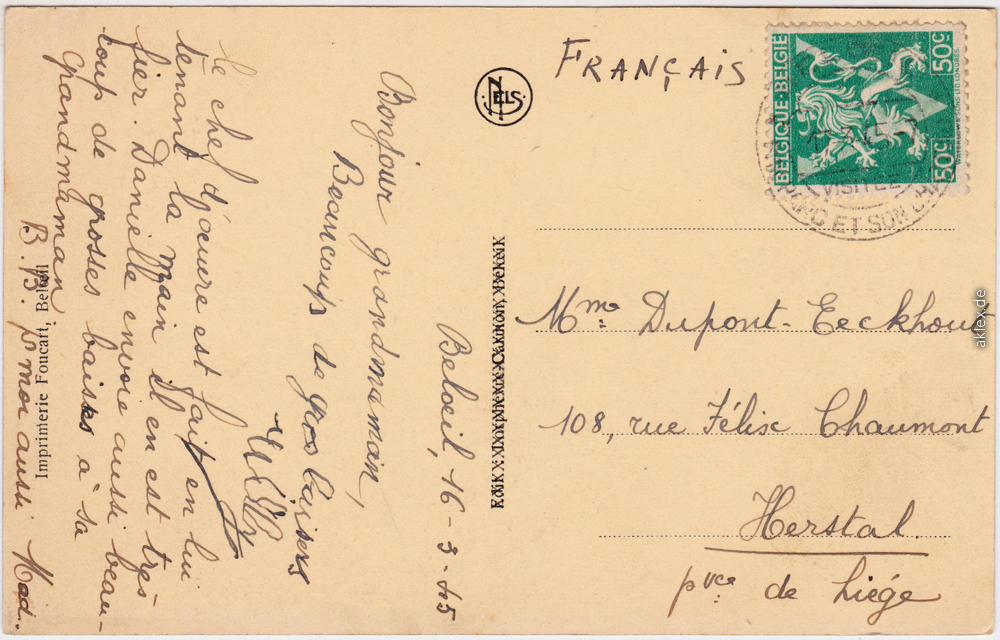 FRANÇAIS
BELGIQUE-BELGIE
50c
50c
WATERLOW & SONS LTD. LONDRES.
VISITEZ
PARC ET SON CH
NELS
Beloeil, 16-3-45
Bonjour grandmaman,
Beaucoup de gros baisers
le chef d'oeuvre est fait en lui
tenant la main Il en est très-
fier. Danielle envoie aussi beau-
coup de grosses baises à sa
grandmaman.
B.B. p moi aussi Mad.
Imprimerie Foucart, Belœil
Mme Dupont-Eeckhout
108, rue Félix Chaumont
Herstal.
pvce de Liége
aklex.de